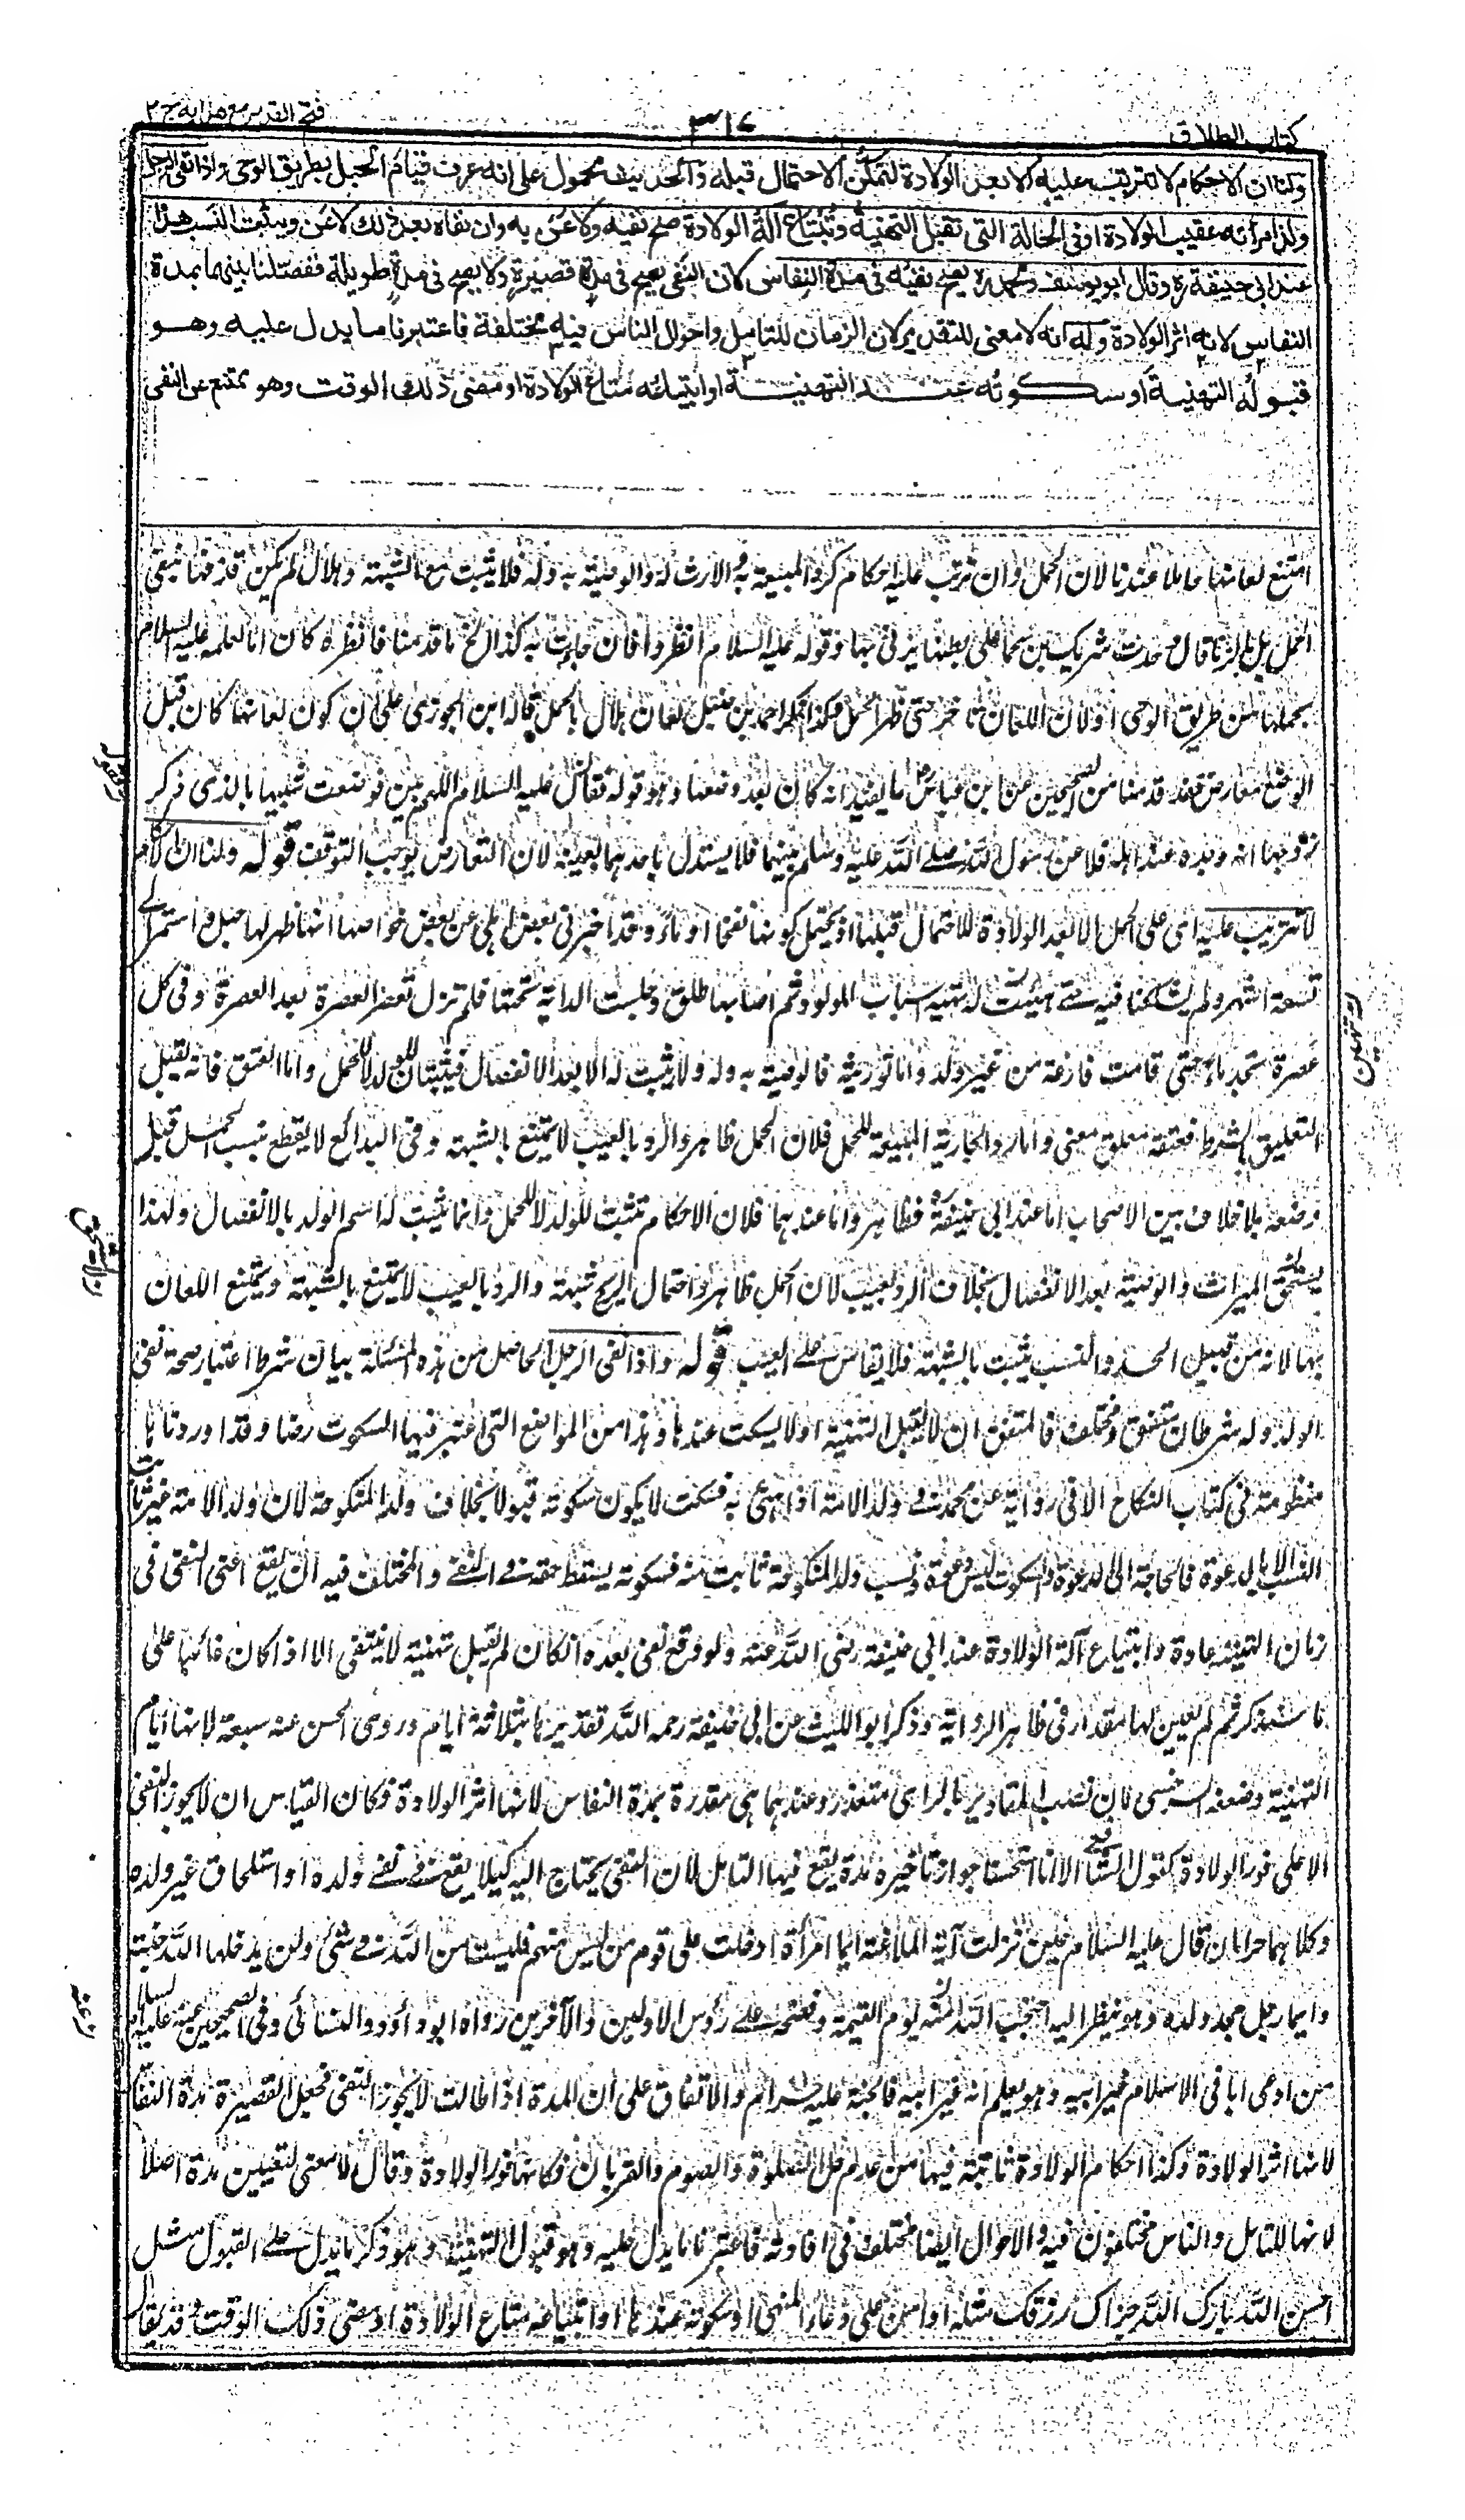 كتاب الطلاق
٣١٤
فتح القدير مع هدايه ج ٢
ولنا ان الاحكام لا تترتب عليه الا بعد الولادة لتمكن الاحتمال قبله والحديث محمول على انه عرف قيام الحبل بطريق الوحى واذا نفى الرجل
ولد امرأته عقيب الولادة او فى الحالة التى تقبل التهنية وتبتاع آلة الولادة صح نفيه ولاعن به وان نفاه بعد ذلك لاعن ويثبت النسب هذا
عند ابى حنيفة ره وقال ابو يوسف ومحمد ره يصح نفيه فى مدة النفاس لان النفى يصح فى مدة قصيرة ولا يصح فى مدة طويلة ففصلنا بينهما بمدة
النفاس لانه اثر الولادة وله انه لا معنى للتقدير لان الزمان للتامل واحوال الناس فيه مختلفة فاعتبرنا ما يدل عليه وهو
قبوله التهنية او سكوته عند التهنية او ابتياعه متاع الولادة او مضى ذلك الوقت وهو ممتنع عن النفى
امتنع لعانها حاملا عندنا لان الحمل وان ترتب عليه احكام كرد المبيعة به والارث له والوصية به وله فلا يثبت مع الشبهة وهلال لم يكن قذفها بنفى
الحمل بل بالزنا قال وجدت شريك بن سحما على بطنها يزنى بها وقوله عليه السلام انظروا فان جاءت به كذا الخ ما قدمنا فانظره كان اما لعلمه عليه السلام
بحملها من طريق الوحى او لان اللعان تاخر حتى ظهر الحمل وكذا انكر احمد بن حنبل لعان هلال بالحمل قاله ابن الجوزى على ان كون لعانها كان قبل
الوضع معارض فقد قدمنا من الصحيحين عن ابن عباس ما يفيد انه كان بعد وضعها وهو قوله فقال عليه السلام اللهم بين فوضعت شبيها بالذى ذكر
زوجها انه وجده عند اهله فلاعن رسول الله صلى الله عليه وسلم بينهما فلا يستدل باحدهما بعينه لان التعارض يوجب التوقف قوله ولنا ان الاحكام
لا تترتب عليه اى على الحمل الا بعد الولادة للاحتمال قبلها اذ يحتمل كونها نفخا او ماء وقد اخبرنى بعض اهلى عن بعض خواصها انها ظهر لها حبل واستمر الى
تسعة اشهر ولم يشككنا فيه حتى هيئت له تهية اسباب المولود ثم اصابها طلق وجلست الداية تحتها فلم تزل تعصر العصرة بعد العصرة وفى كل
عصرة تجد ماء حتى قامت فارغة من غير ولد واما توريثه فالوصية به وله ولا يثبت له الا بعد الانفصال فيثبتان للولد لا للحمل واما العتق فانه يقبل
التعليق بالشرط فعتقه معلق معنى واما رد الجارية المبيعة للحمل فلان الحمل ظاهر والرد بالعيب لا يمتنع بالشبهة وفى البدائع لا يقطع نسب الحمل قبل
وضعه بلا خلاف بين الاصحاب اما عند ابى حنيفة فظاهر واما عندهما فلان الاحكام تثبت للولد لا للحمل وانما يثبت له اسم الولد بالانفصال ولهذا
يستحق الميراث والوصية بعد الانفصال بخلاف الرد بعيب لان الحمل ظاهر واحتمال الريح شبهة والرد بالعيب لا يمتنع بالشبهة ويمتنع اللعان
بها لانه من قبيل الحد والنسب يثبت بالشبهة فلا يقاس على العيب قوله واذا نفى الرجل الحاصل من هذه المسئلة بيان شرط اعتبار صحة نفى
الولد وله شرطان متفق ومختلف فالمتفق ان لا يقبل التهنية او لا يسكت عندها وهذا من المواضع التى اعتبر فيها السكوت رضا وقد اوردناها
منظومة فى كتاب النكاح الا فى رواية عن محمد فى ولد الامة اذا هنى به فسكت لا يكون سكوته قبولا بخلاف ولد المنكوحة لان ولد الامة غير ثابت
النسب الا بالدعوة فالحاجة الى الدعوة والسكوت ليس دعوة ونسب ولد المنكوحة ثابت منه فسكوته يسقط حقه فى النفى والمختلف فيه ان يقع اعنى النفى فى
زمان التهنية عادة وابتياع آلة الولادة عند ابى حنيفة رضى الله عنه ولو وقع نفى بعده ان كان لم يقبل تهنية لا ينتفى الا اذا كان غائبا على
ما سنذكر ثم لم يعين لها مقدار فى ظاهر الرواية وذكر ابو الليث عن ابى حنيفة رحمه الله تقديرها بثلاثة ايام وروى الحسن عنه سبعة لانها ايام
التهنية وضعفه السرخسى بان نصب المقادير بالراى متعذر وعندهما هى مقدرة بمدة النفاس لانها اثر الولادة فكان القياس ان لا يجوز النفى
الا على فور الولادة كقول الشافعى الا انا استحسنا جواز تاخيره مدة يقع فيها التامل لان النفى يحتاج اليه كيلا يقع فى نفى ولده او استلحاق غير ولده
وكلاهما حرام بان قال عليه السلام حين نزلت آية الملاعنة ايما امرأة ادخلت على قوم من ليس منهم فليست من الله فى شئ ولن يدخلها الله جنته
وايما رجل جحد ولده وهو ينظر اليه احتجب الله منه يوم القيمة وفضحه على رؤس الاولين والآخرين رواه ابو داؤد والنسائى وفى الصحيحين عنه عليه السلام
من ادعى ابا فى الاسلام غير ابيه وهو يعلم انه غير ابيه فالجنة عليه حرام والاتفاق على ان المدة اذا طالت لا يجوز النفى فجعل القصيرة مدة النفاس
لانها اثر الولادة وكذا احكام الولادة ثابتة فيها من عدم حل الصلوة والصوم والقربان فكانها فور الولادة وقال لا معنى لتعيين مدة اصلا
لانها للتامل والناس مختلفون فيه والاحوال ايضا تختلف فى افادته فاعتبرنا ما يدل عليه وهو قبول التهنية وهو ذكر ما يدل على القبول مثل
احسن الله بارك الله جزاك الله رزقك مثله او امن على دعاء المهنى او سكوته عندها او ابتياعه متاع الولادة او مضى ذلك الوقت وقد يقال